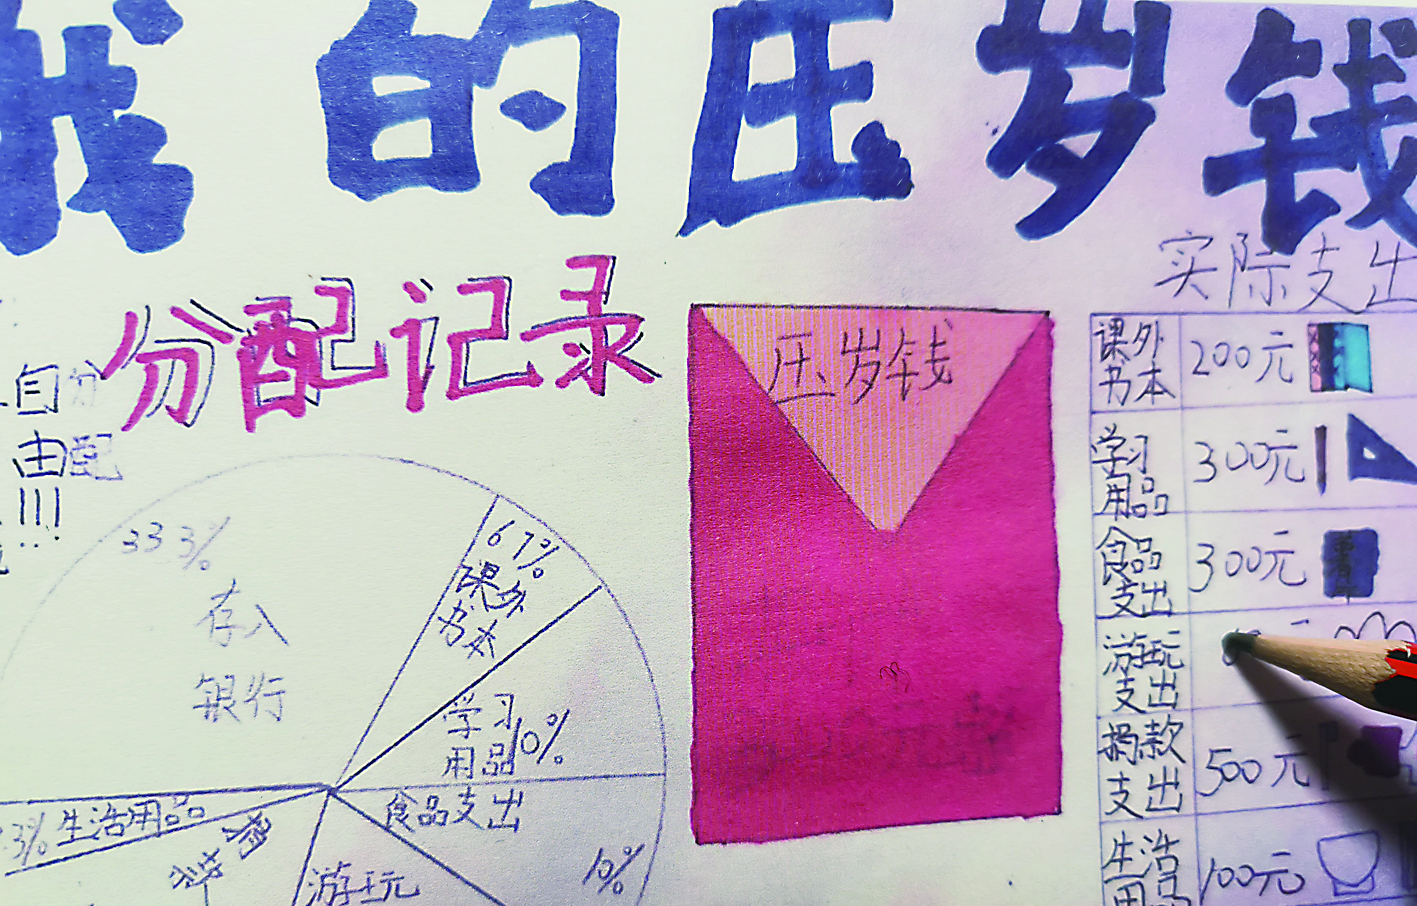 我的压岁钱
分配记录
自分
由配
!!!
压岁钱
实际支出
课外书本 200元
学习用品 300元
食品支出 300元
游玩支出 元
捐款支出 500元
生活用品 100元
33.3%
存入
银行
6.7%
课外
书本
学习
用品
10%
食品支出
10%
游玩
.3% 生活用品